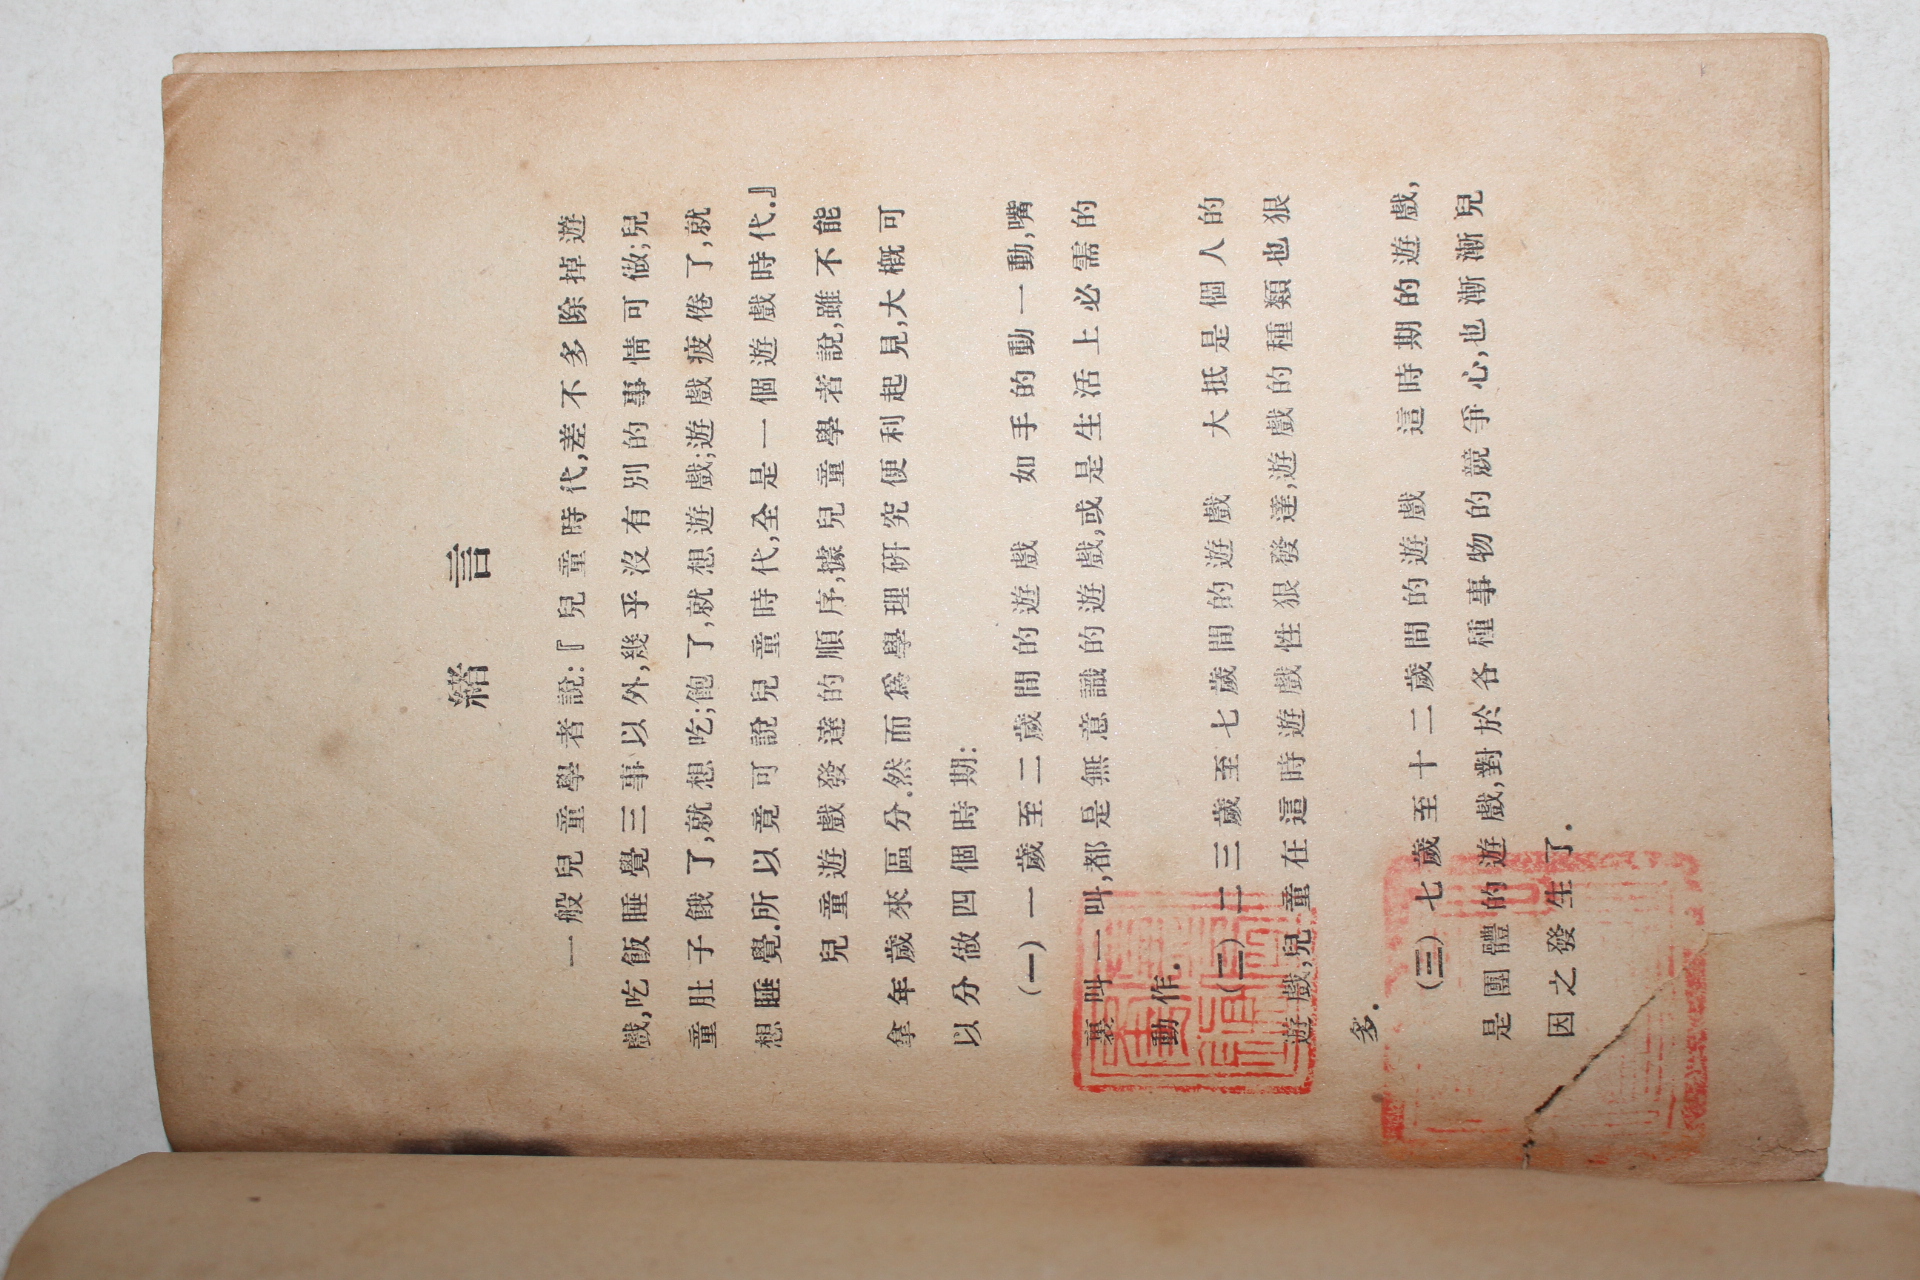 緒言
一般兒童學者說:『兒童時代,差不多除掉遊
戲,吃飯睡覺三事以外,幾乎沒有別的事情可做;兒
童肚子餓了,就想吃;飽了,就想遊戲;遊戲疲倦了,就
想睡覺.所以竟可說兒童時代,全是一個遊戲時代.』
兒童遊戲發達的順序,據兒童學者說,雖不能
拿年歲來區分.然而爲學理研究便利起見,大概可
以分做四個時期:
(一)一歲至二歲間的遊戲 如手的動一動,嘴
裏叫一叫,都是無意識的遊戲,或是生活上必需的
動作.
(二)二三歲至七歲間的遊戲 大抵是個人的
遊戲,兒童在這時遊戲性狠發達,遊戲的種類也狠
多.
(三)七歲至十二歲間的遊戲 這時期的遊戲,
是團體的遊戲,對於各種事物的競爭心,也漸漸兒
因之發生了.